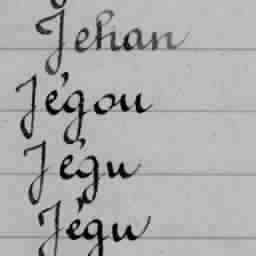 Jehan
Jégou
Jégu
Jégu